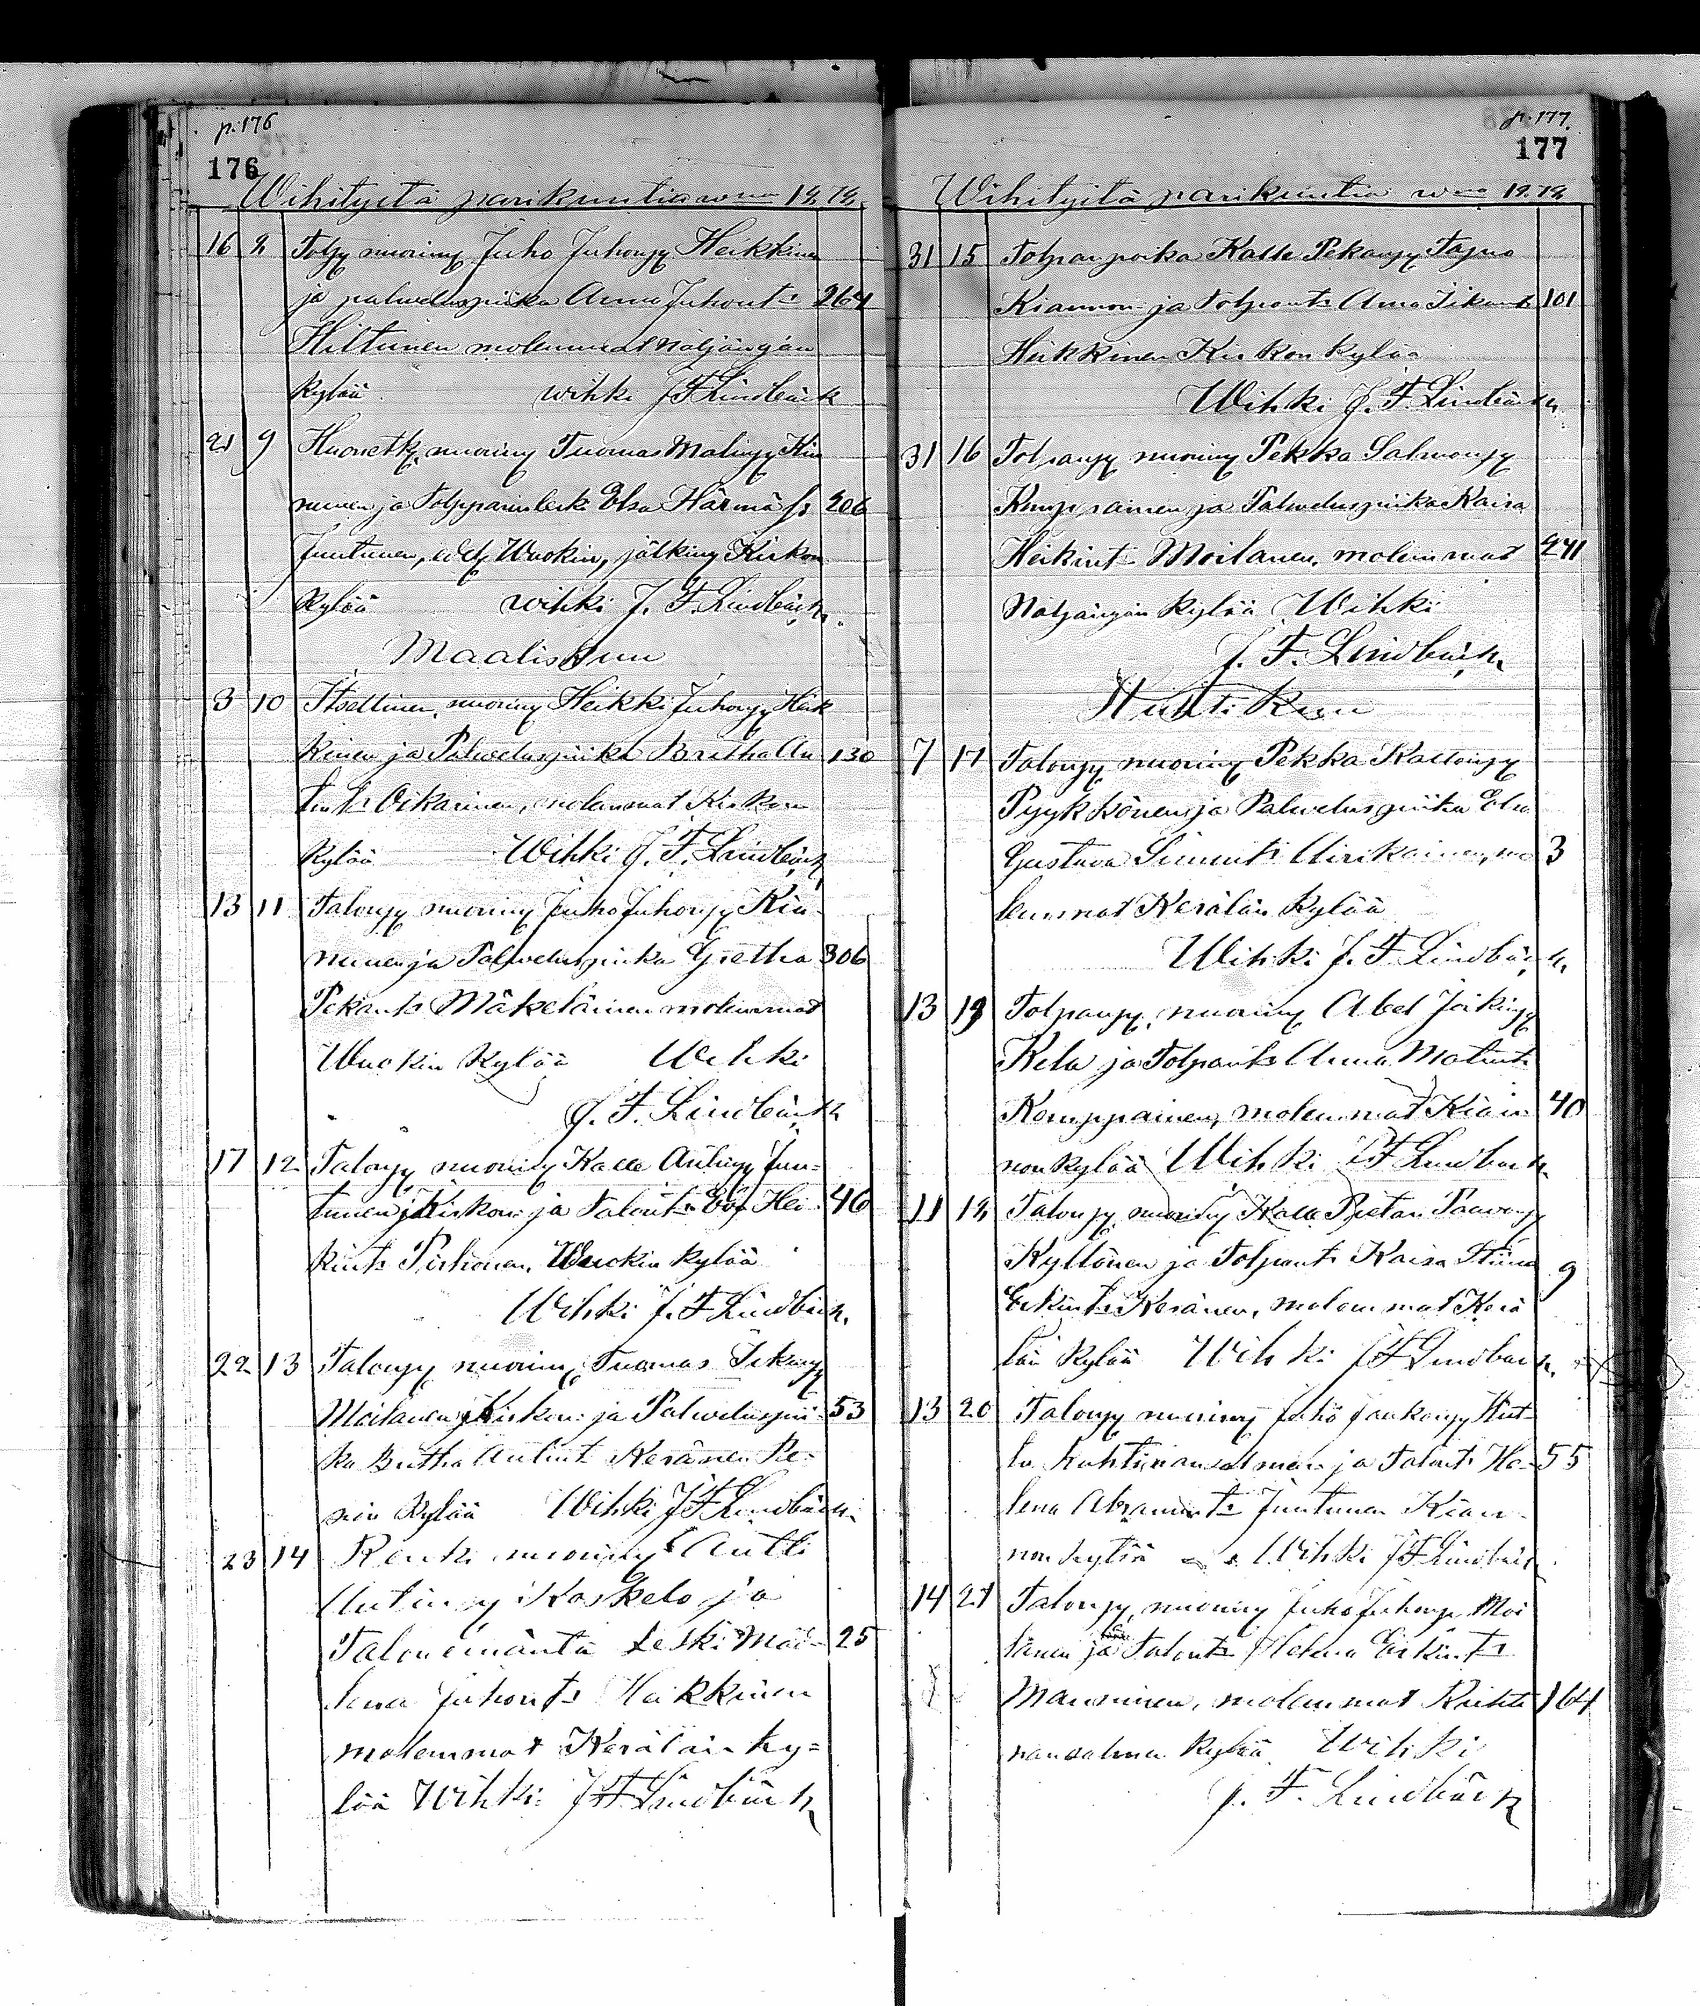 p. 176
176
Wihityitä parikuntia wna 1878
16 8 Tolp nuoriny Juho Juhonp Heikkinen
ja palweluspiika Anna Juhont: 264
Hiltunen molemmat Näljängän
kylää wihki J F Lindbäck
21 9 nuoriny Tuomas Matinp Kin
nunen ja leski Elsa Härmä 206
Juntunen, Wuokin, jälkiny Kirkon
kylää wihki J. F. Lindbäck
Maaliskuu
3 10 Itsellinen, nuoriny Heikki Juhonp Heik
kinen ja Palweluspiika Bretha An 130
tint: Oikarinen, molemmat Kirkon
kylää Wihki J. F. Lindbäck
13 11 Talonp nuoriny Juho Juhonp Kin
nunen ja Palweluspiika Gretha 306
Pekant: Mäkeläinen molemmat
Wuokin kylää Wihki
J. F. Lindbäck
17 12 Talonp nuoriny Kalle Antinp Jun=
tunen Kirkon: ja Talont: Ewa Hei 46
kint: Pirhonen, Wuokin kylää
Wihki J. F Lindbäck
22 13 Talonp nuoriny Tuomas Iikanp
Moilanen Kirkon: ja Palweluspii- 53
ka Bretha Antint Keränen Pe-
sin kylää Wihki J F Lindbäck
23 14 Renki nuoriny Antti
Antinp Koskelo ja
Talonemäntä leski Mad- 25
lena Juhont: Heikkinen
molemmat Kerälän ky=
lää Wihki: J F Lindbäck
p. 177
177
Wihityitä parikuntia wna 1878
31 15 Tolpan poika Kalle Pekanp Tapio
Kiannon ja Tolpant: Anna Iikant: 101
Heikkinen Kirkon kylää
Wihki J. F. Lindbäck
31 16 Tolpanp nuoriny Pekka Salmonp
Kemppainen ja Palweluspiika Kaisa
Heikint: Moilanen, molemmat 271
Näljängän kylää Wihki
J. F. Lindbäck
Huhtikuu
7 17 Talonp nuoriny Pekka Kallonp
Pyykkönen ja Palweluspiika Elsa
Gustawa Simunt: Uirikainen, mo 3
lemmat Kerälän kylää
Wihki J. F Lindbäck
13 19 Tolpanp, nuoriny Abel Joikinp
Kela ja Tolpant: Anna Matint:
Kemppainen, molemmat Kian 40
non kylää Wihki J F Lindbäck
11 18 Talonp nuoriny Kalle Pietari Paawonp
Kyllönen ja Tolpant: Kaisa Stiina 9
Erkint: Keränen, molemmat Kerä
län kylää Wihki J F Lindbäck
13 20 Talonp nuoriny Juho Jaakonp Hut-
tu Ruhtinansalmen ja Talont: He- 55
lena Abramint: Juntunen Kian-
non kylää Wihki J F Lindbäck
14 21 Talonp, nuoriny Juho Juhonp Moi
lanen ja Talont: Helena Erkint:
Manninen, molemmat Ruhti 164
nansalmen kylää Wihki
J. F. Lindbäck